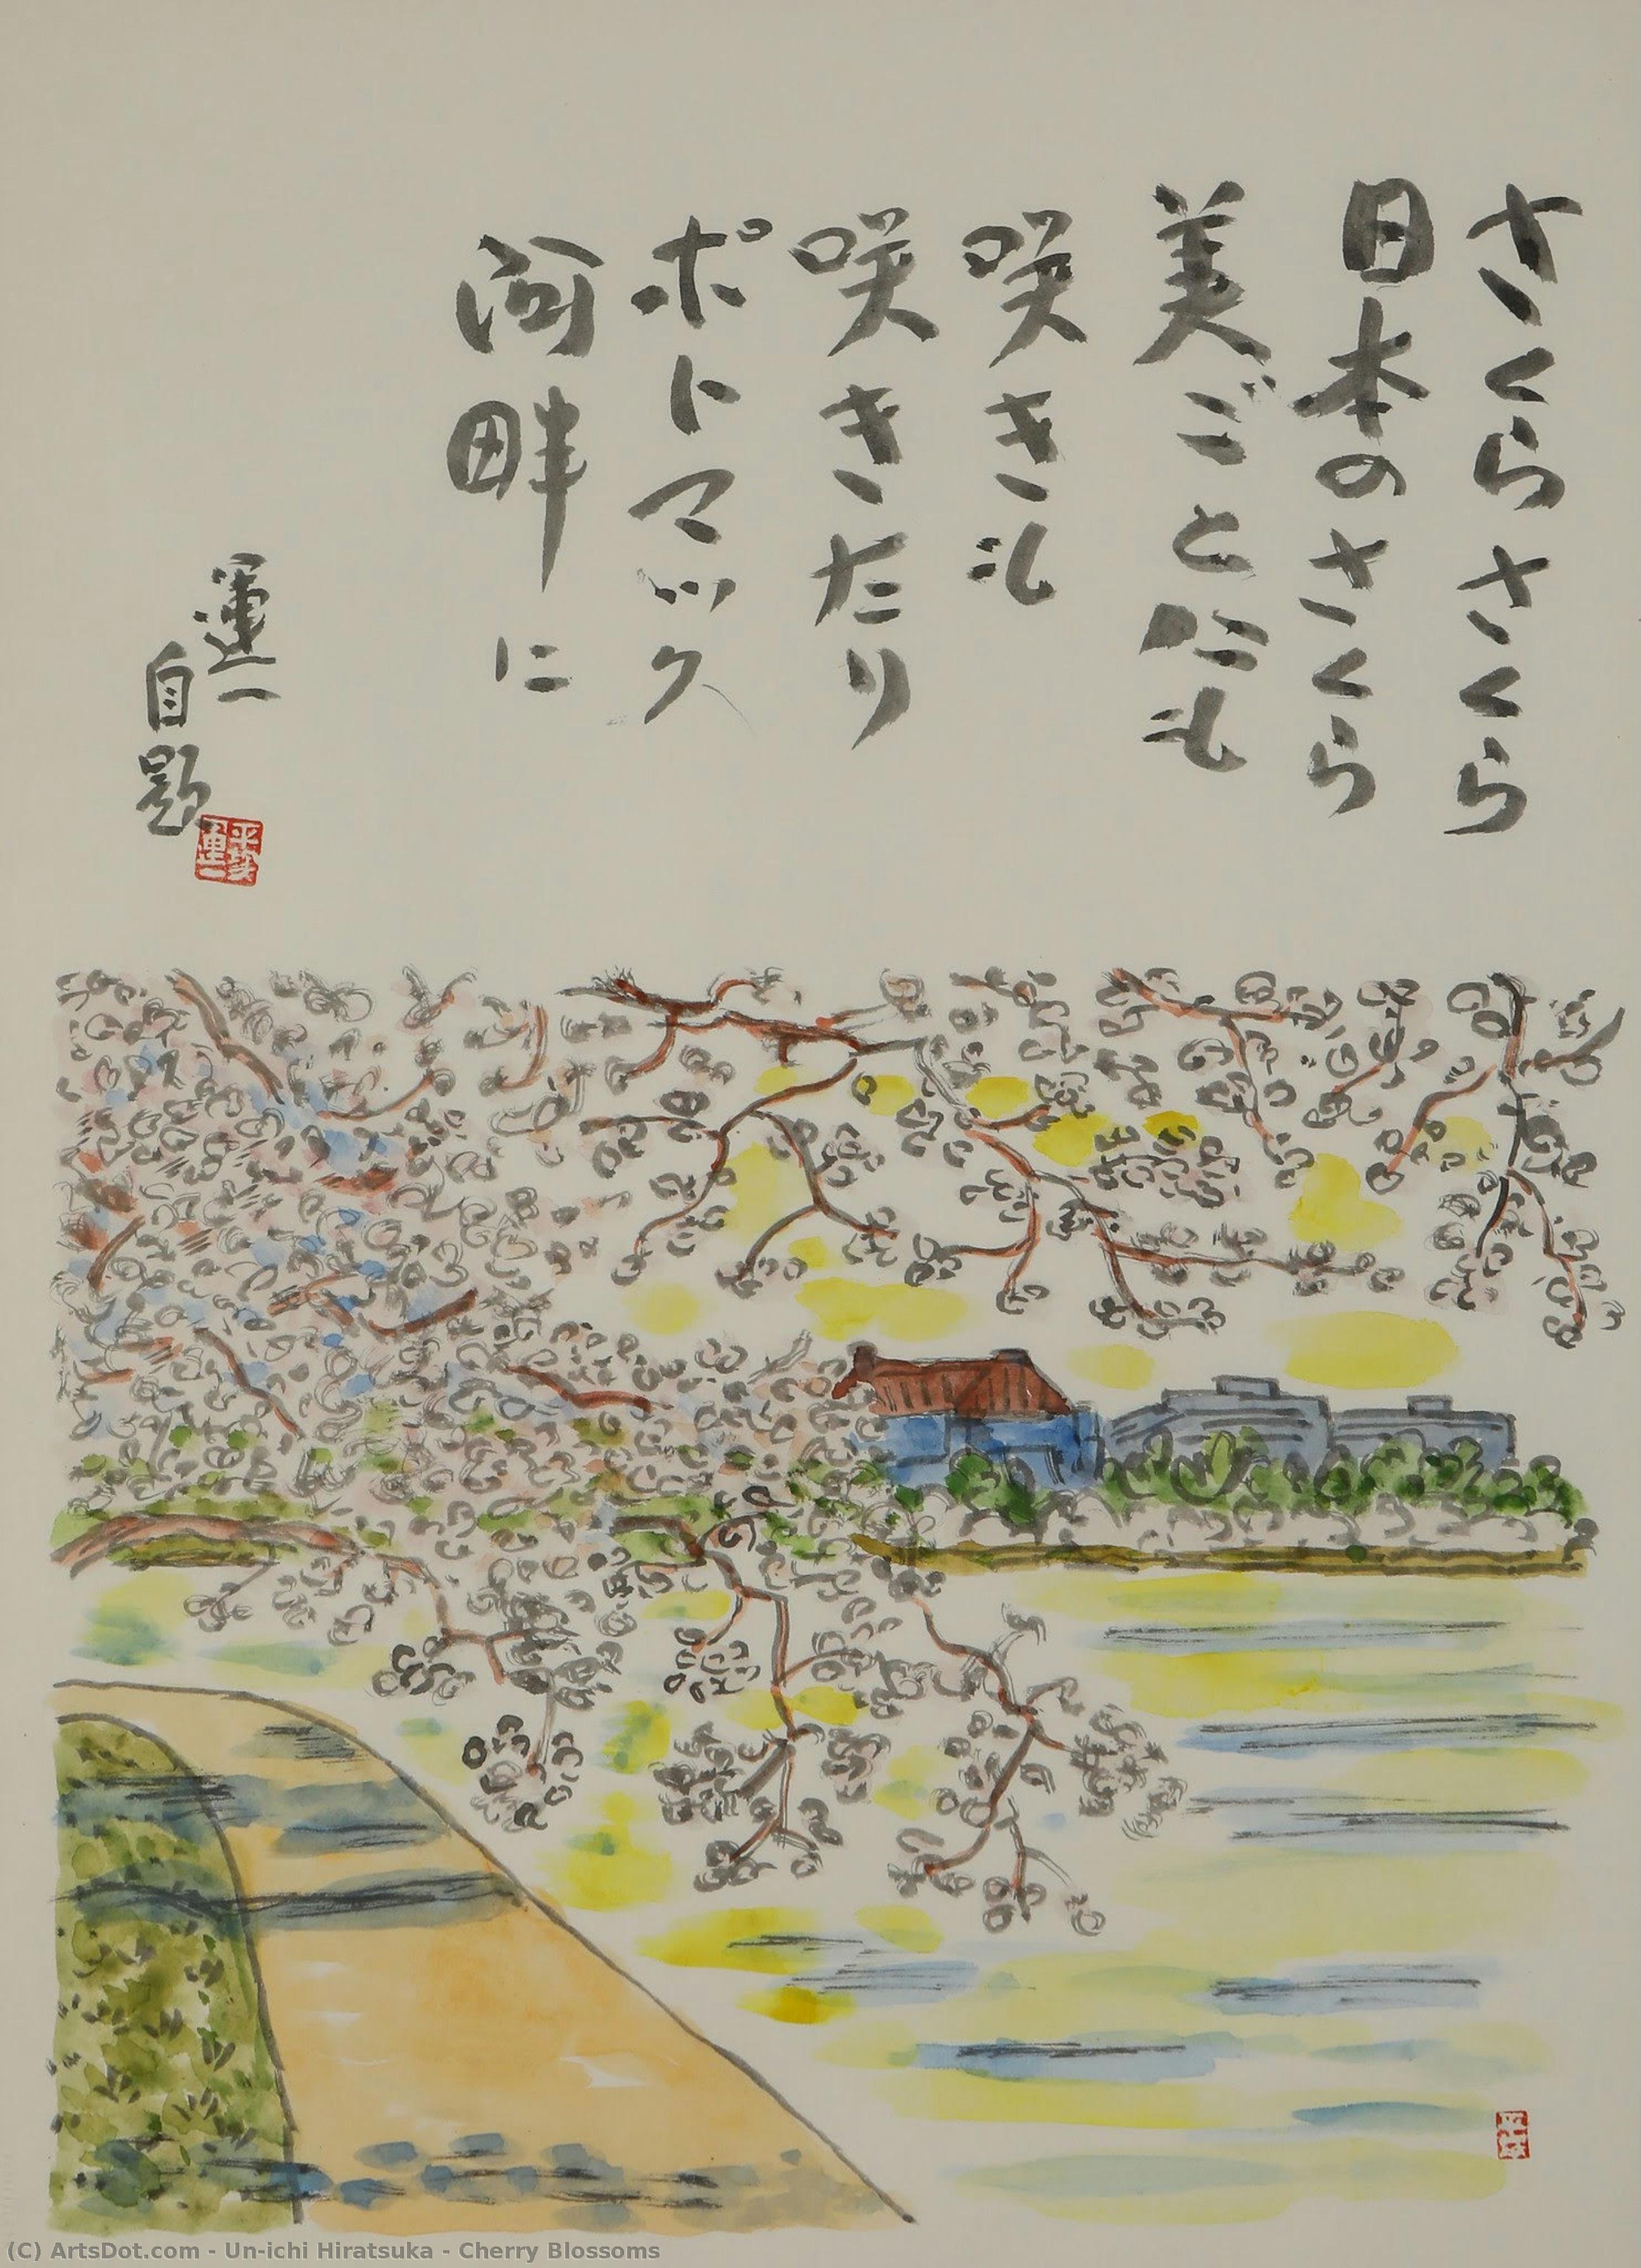 さくらさくら
日本のさくら
美ごとにも
咲きも
咲きたり
ポトマック
河畔に
運一
自題
平塚
運一
(C) ArtsDot.com - Un-ichi Hiratsuka - Cherry Blossoms